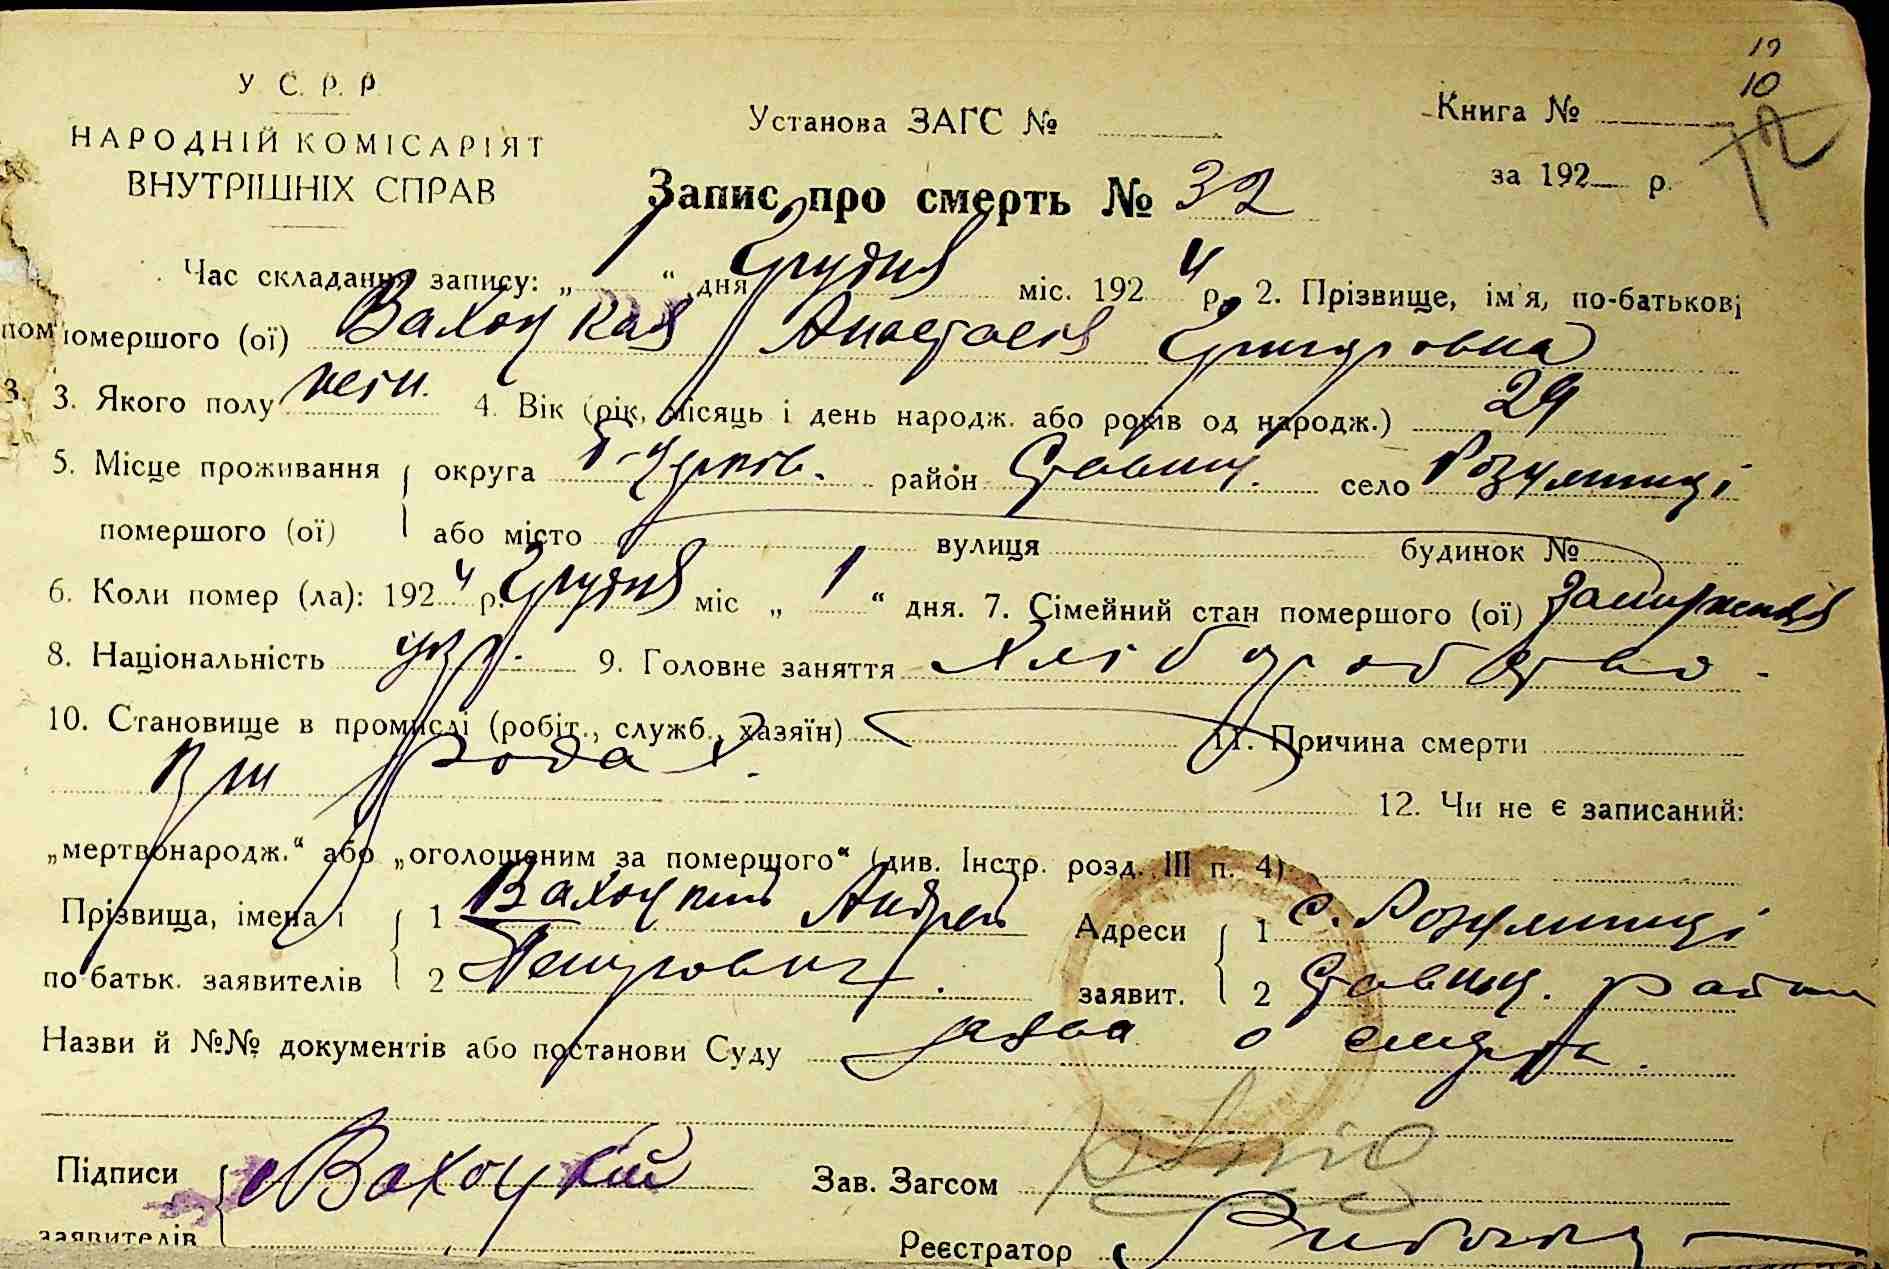 19
10
12
У. С. Р. Р.
НАРОДНІЙ КОМІСАРІЯТ
ВНУТРІШНІХ СПРАВ
Установа ЗАГС №
Книга №
за 192 р.
Запис про смерть № 32
Час складання запису: „ 1 “ дня Грудня міс. 192 4 р. 2. Прізвище, ім'я, по-батькові
пом помершого (ої) Вахоцкая Анастасія Григоровна
3. 3. Якого полу жен. 4. Вік (рік, місяць і день народж. або років од народж.) 29
5. Місце проживання округа Б-Церків. район Ставищ. село Розумниці
помершого (ої) або місто вулиця будинок №
6. Коли помер (ла): 192 4 р. Грудня міс „ 1 “ дня. 7. Сімейний стан помершого (ої)
8. Національність укр. 9. Головне заняття Хліборобство.
10. Становище в промислі (робіт., служб., хазяїн) 11. Причина смерти
При родах. 12. Чи не є записаний:
„мертвонародж.“ або „оголошеним за помершого“ (див. Інстр. розд. III п. 4)
Прізвища, імена і 1 Вахоцкий Андрей Адреси 1 с. Розумниці
по батьк. заявителів 2 Петрович. заявит. 2 Ставищ. район
Назви й №№ документів або постанови Суду заява о смерти.
Підписи Вахоцкий Зав. Загсом
заявителів Реєстратор